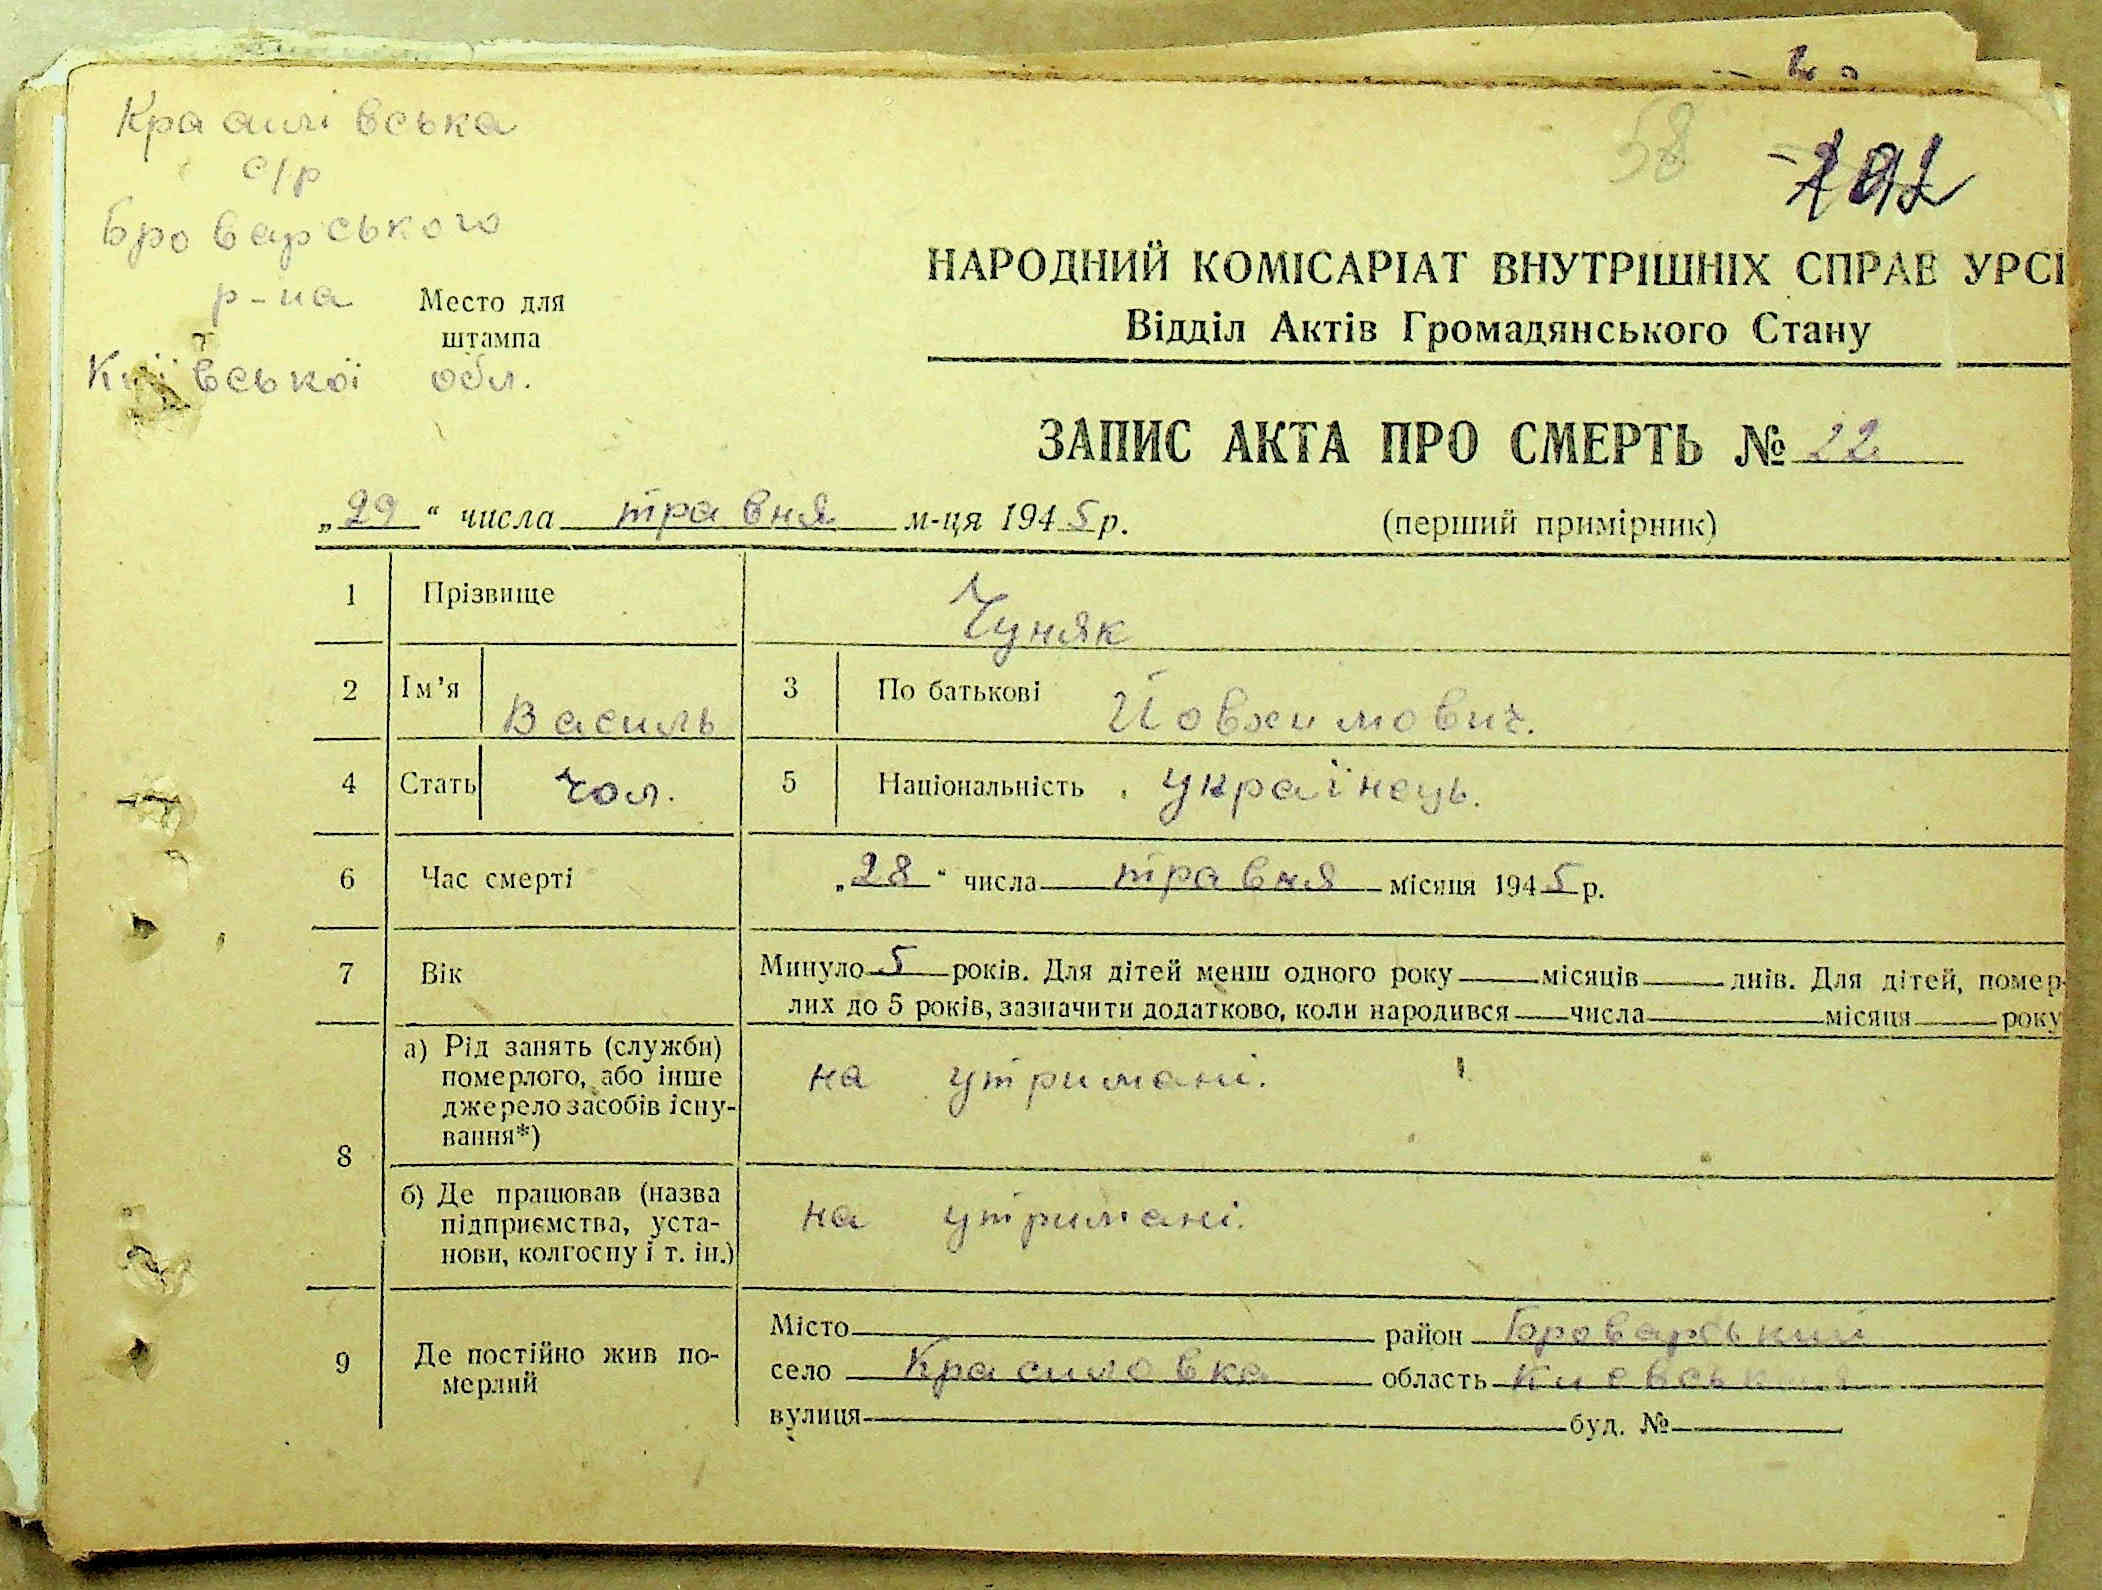 Красилівська
с/р
58
Броварського
НАРОДНИЙ КОМІСАРІАТ ВНУТРІШНІХ СПРАВ УРСР
р-на Место для
штампа
Відділ Актів Громадянського Стану
Київської обл.
ЗАПИС АКТА ПРО СМЕРТЬ № 22
„29“ числа травня м-ця 1945 р. (перший примірник)
1 Прізвище Чуняк
2 Ім’я Василь 3 По батькові Йовхимович.
4 Стать чол. 5 Національність українець.
6 Час смерті „28“ числа травня місяця 1945 р.
7 Вік Минуло 5 років. Для дітей менш одного року місяців днів. Для дітей, помер-
лих до 5 років, зазначити додатково, коли народився числа місяця року
8 а) Рід занять (служби)
померлого, або інше
джерело засобів існу-
вання*) на утримані.
б) Де працював (назва
підприємства, уста-
нови, колгоспу і т. ін.) на утримані.
9 Де постійно жив по-
мерлий
Місто район Броварський
село Красиловка область Киевська
вулиця буд. №